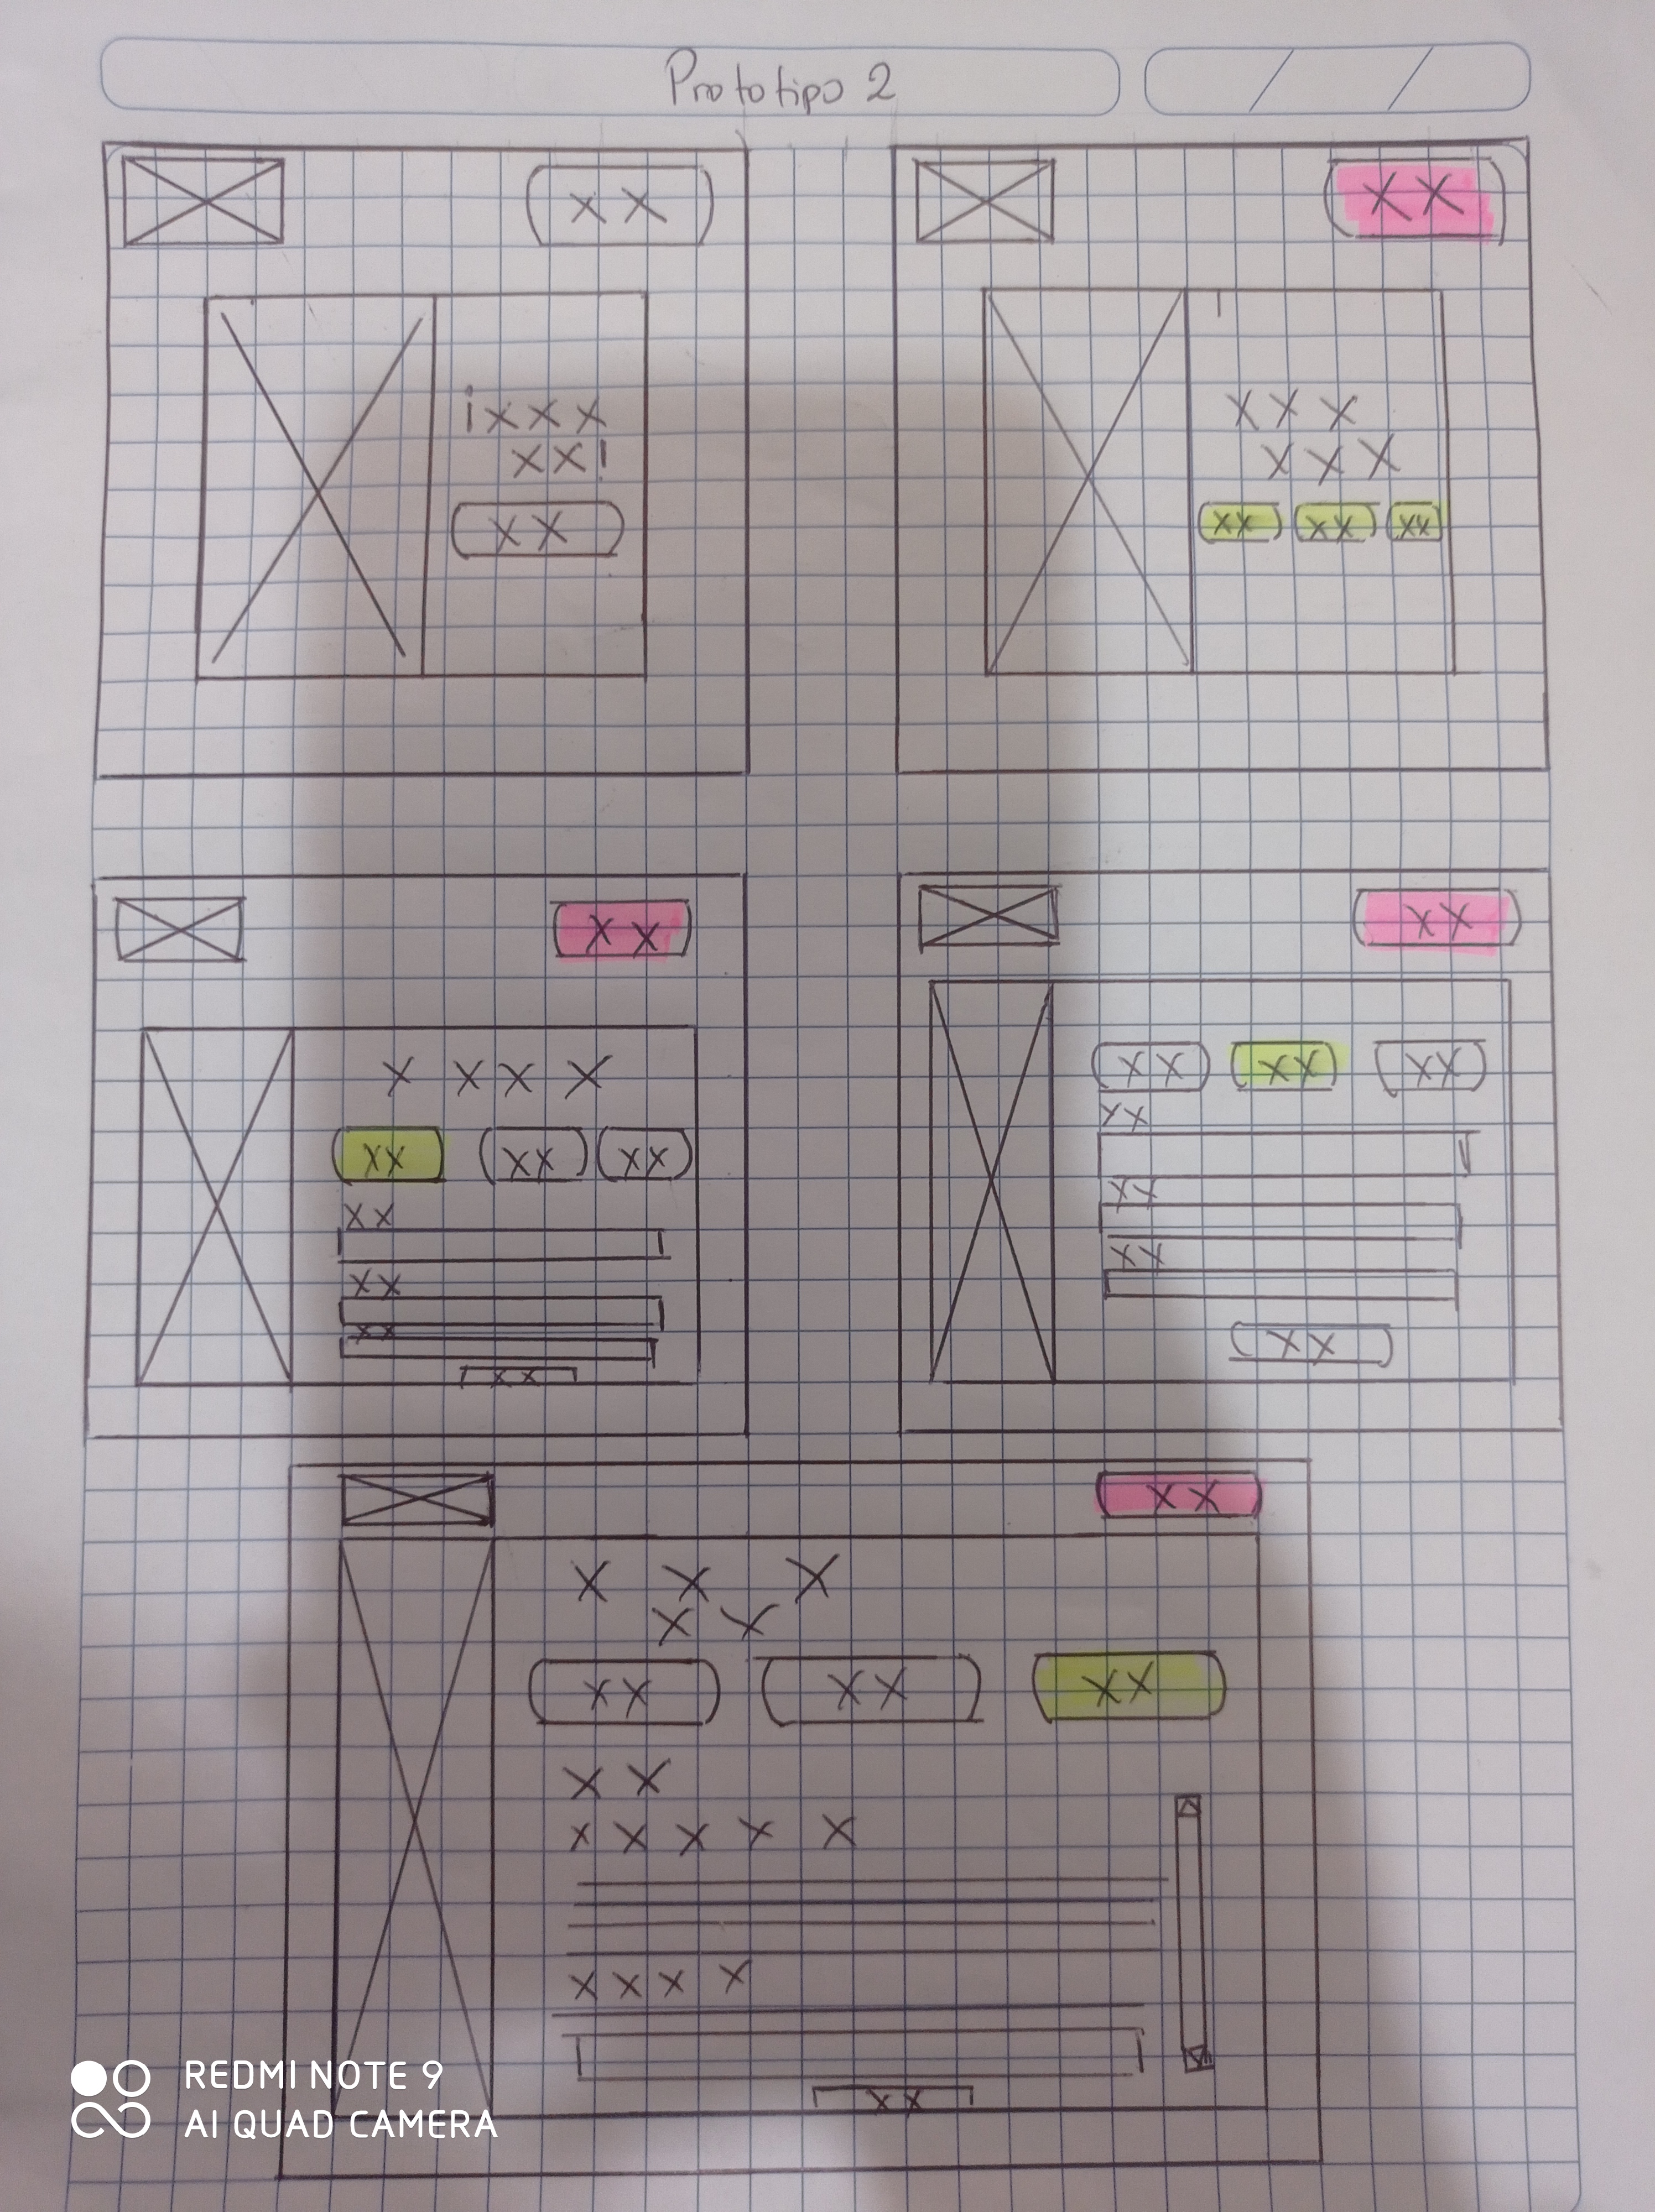 Prototipo 2
X X
¡X X X
X X!
X X
X X
X X X
X X X
XX XX XX
X X
X X X X
XX XX XX
XX
XX
XX
XX
X X
XX XX XX
XX
XX
XX
XX
X X
X X X
X X
XX XX XX
X X
X X X X X
X X X X
XX
REDMI NOTE 9
AI QUAD CAMERA